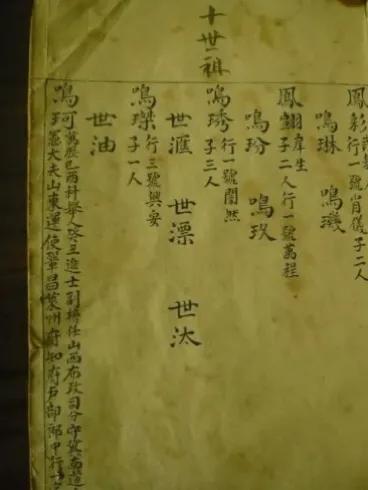 十世祖
鳳彩 行一號肖儀子二人
鳴琳 鳴璣
鳳翽 庠生 子二人行一號萬程
鳴玢 鳴玖
鳴琇 行一號闇然 子三人
世滙 世漂 世汰
鳴 行三號興 子一人
世油
鳴珂 萬歷己酉科舉人癸丑進士副榜任山西布政司分守冀南道 憲大夫山東運使鞏昌萊州府知府戶部郎中行